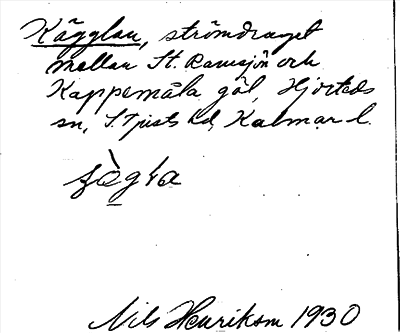 Kägglan, strömdraget
mellan St. Ramsjön och
Kappemåla göl, Hjorteds
sn, S. Tjusts hd, Kalmar l.
Nils Henrikson 1930